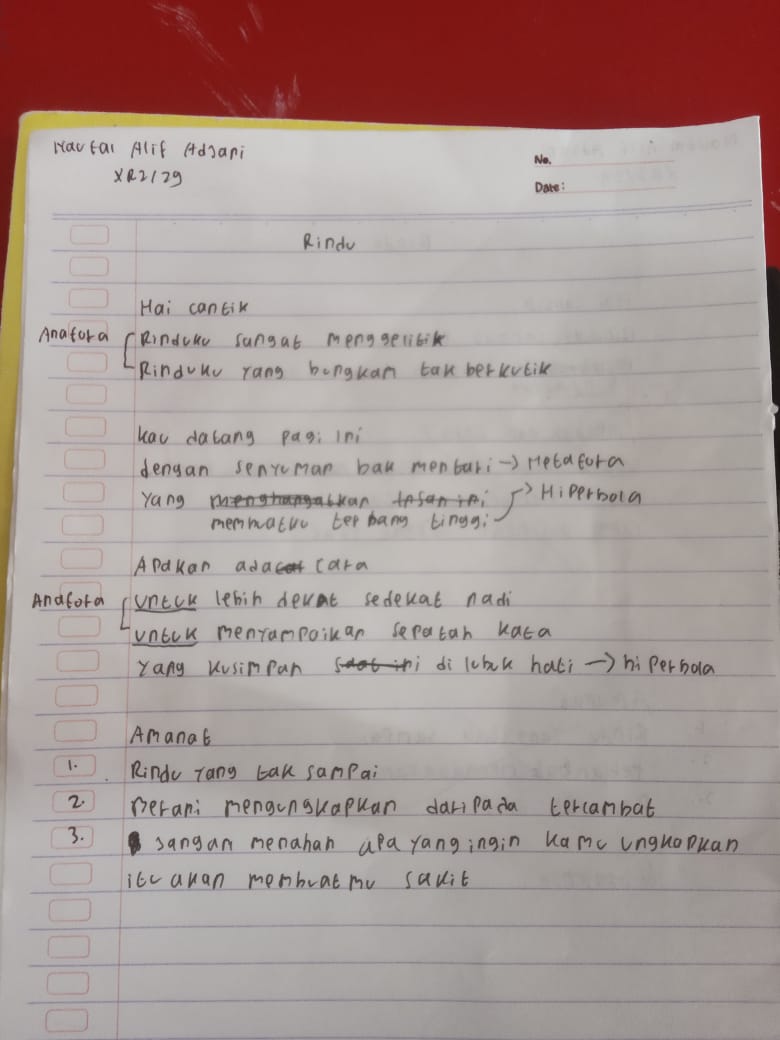 Naufal Alif Adjani
XR2/29
No.
Date:
Rindu
Hai cantik
Anafora Rinduku sangat menggelitik
Rinduku yang bungkam tak berkutik
kau datang pagi ini
dengan senyuman bak mentari → Metafora
yang menghangatkan insan ini → Hiperbola
membuatku terbang tinggi
Apakah ada cara
Anafora untuk lebih dekat sedekat nadi
untuk menyampaikan sepatah kata
yang kusimpan saat ini di lubuk hati → hiperbola
Amanat
1. Rindu yang tak sampai
2. Merani mengungkapkan daripada tercambat
3. Jangan menahan apa yang ingin kamu ungkapkan
itu akan membuatmu sakit